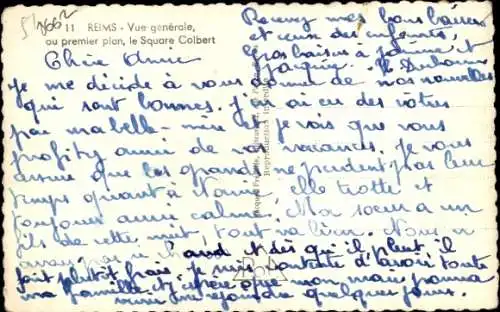 11 REIMS - Vue générale,
au premier plan, le Square Colbert
Recevez mes bons baisers
et ceux des enfants,
Gros baisers à
Chère Amie
Je me décide à vous donner de nos nouvelles
qui sont bonnes. J'ai eu des vôtres
par ma belle-mère et je vois que vous
profitez aussi de vos vacances. Je vous
assure que les grands ne perdent pas leur
temps quant à elle trotte et
toujours aussi calme. Ma soeur a un
fils de cette nuit, tout va bien. Nous n'
avons pas chaud et dès qu'il pleut il
fait plutôt frais. Je suis contente d'avoir toute
ma famille et j'espère que mon mari pourra
venir me rejoindre quelques jours.